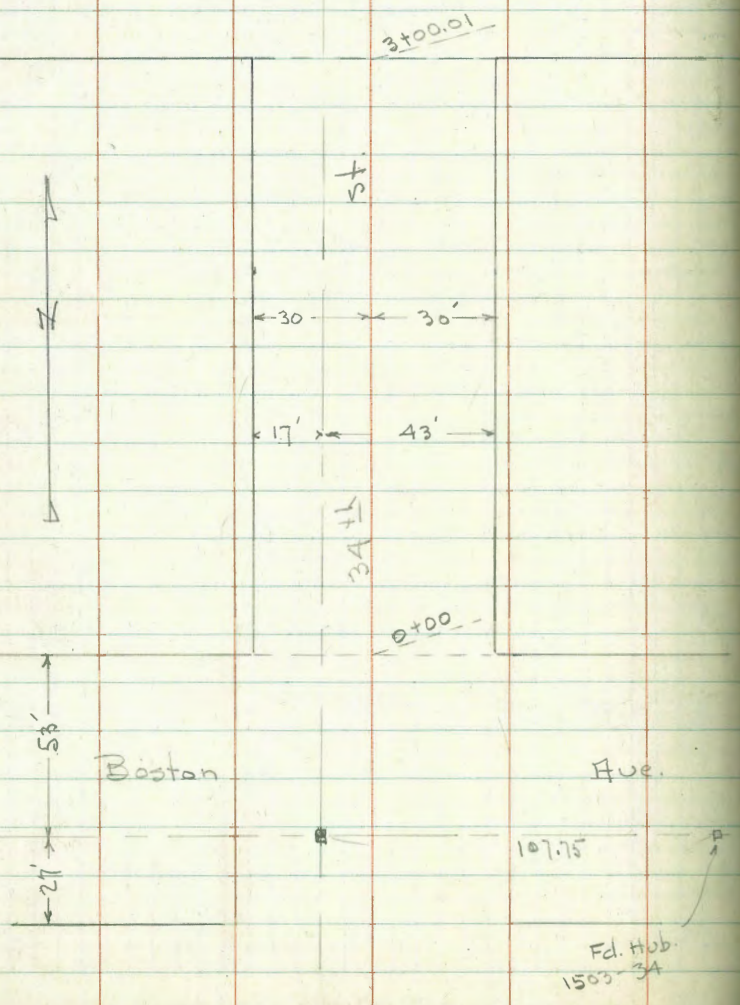 3+00.01
St.
N
30
30'
17'
43'
34 th
0+00
53'
Boston
Ave.
107.75
27'
Fd. Hub.
1503-34